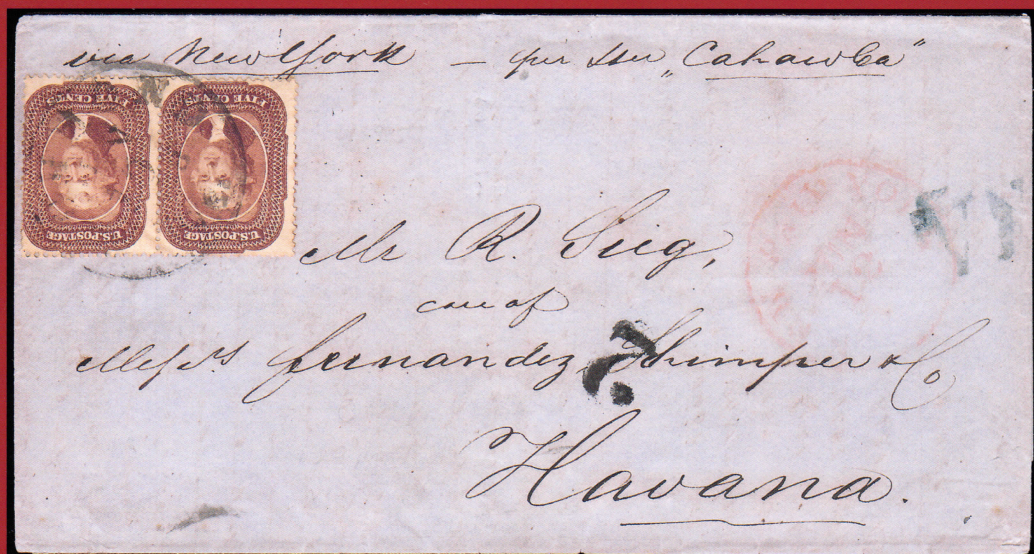 via New York — per Str „Cahawba"
FIVE CENTS
FIVE CENTS
U.S. POSTAGE
U.S. POSTAGE
Mr R. Sieg,
care of
Messrs Fernandez, Shimper & Co
Havana.